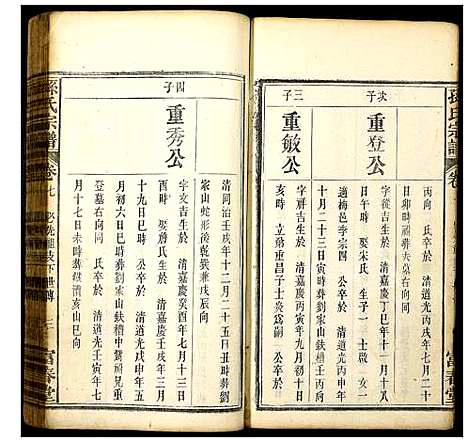 孫氏宗譜
卷
富春堂
丙向 氏卒於 清道光丙戌年七月二十
日卯時葬夫墓右向同
次子
重登公
字從吉生於 清嘉慶丁巳年十一月十八
日午時 娶宋氏 生子一 士啟 女一
適梅邑李宗四 公卒於 清道光丙申年
十一月二十三日寅時葬劉家山鈇槽中
三子
重敏公
字屏吉生於 清嘉慶丙寅年九月初十
亥時 立弟重昌子士炎為嗣 公卒於
清同治壬戌年十二月二十五日丑時葬劉
家山蛇形後乾巽兼戌辰向
四子
重秀公
字文吉生於 清嘉慶 酉年七月十三日
酉時 娶詹氏生於 清嘉慶 年三月二
十九日巳時 公卒於 清道光戊申年五
月初六日巳時葬劉家山鈇槽中
登墓右向同 氏卒於 清道光壬寅年七
月十七日未時葬 亥山巳向
孫氏宗譜
卷七
下世傳
三
富春堂